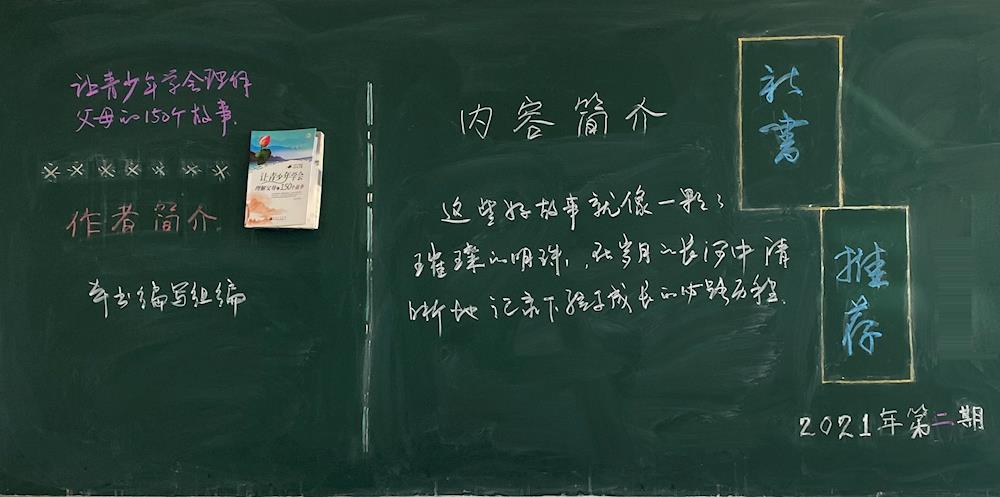 让青少年学会理解
父母的150个故事
※※※※※※※
作者简介
本书编写组编
让青少年学会
理解父母的150个故事
内容简介
这些好故事就像一颗々
璀璨的明珠,在岁月的长河中清
晰地记录下孩子成长的心路历程.
新书
推荐
2021年第二期